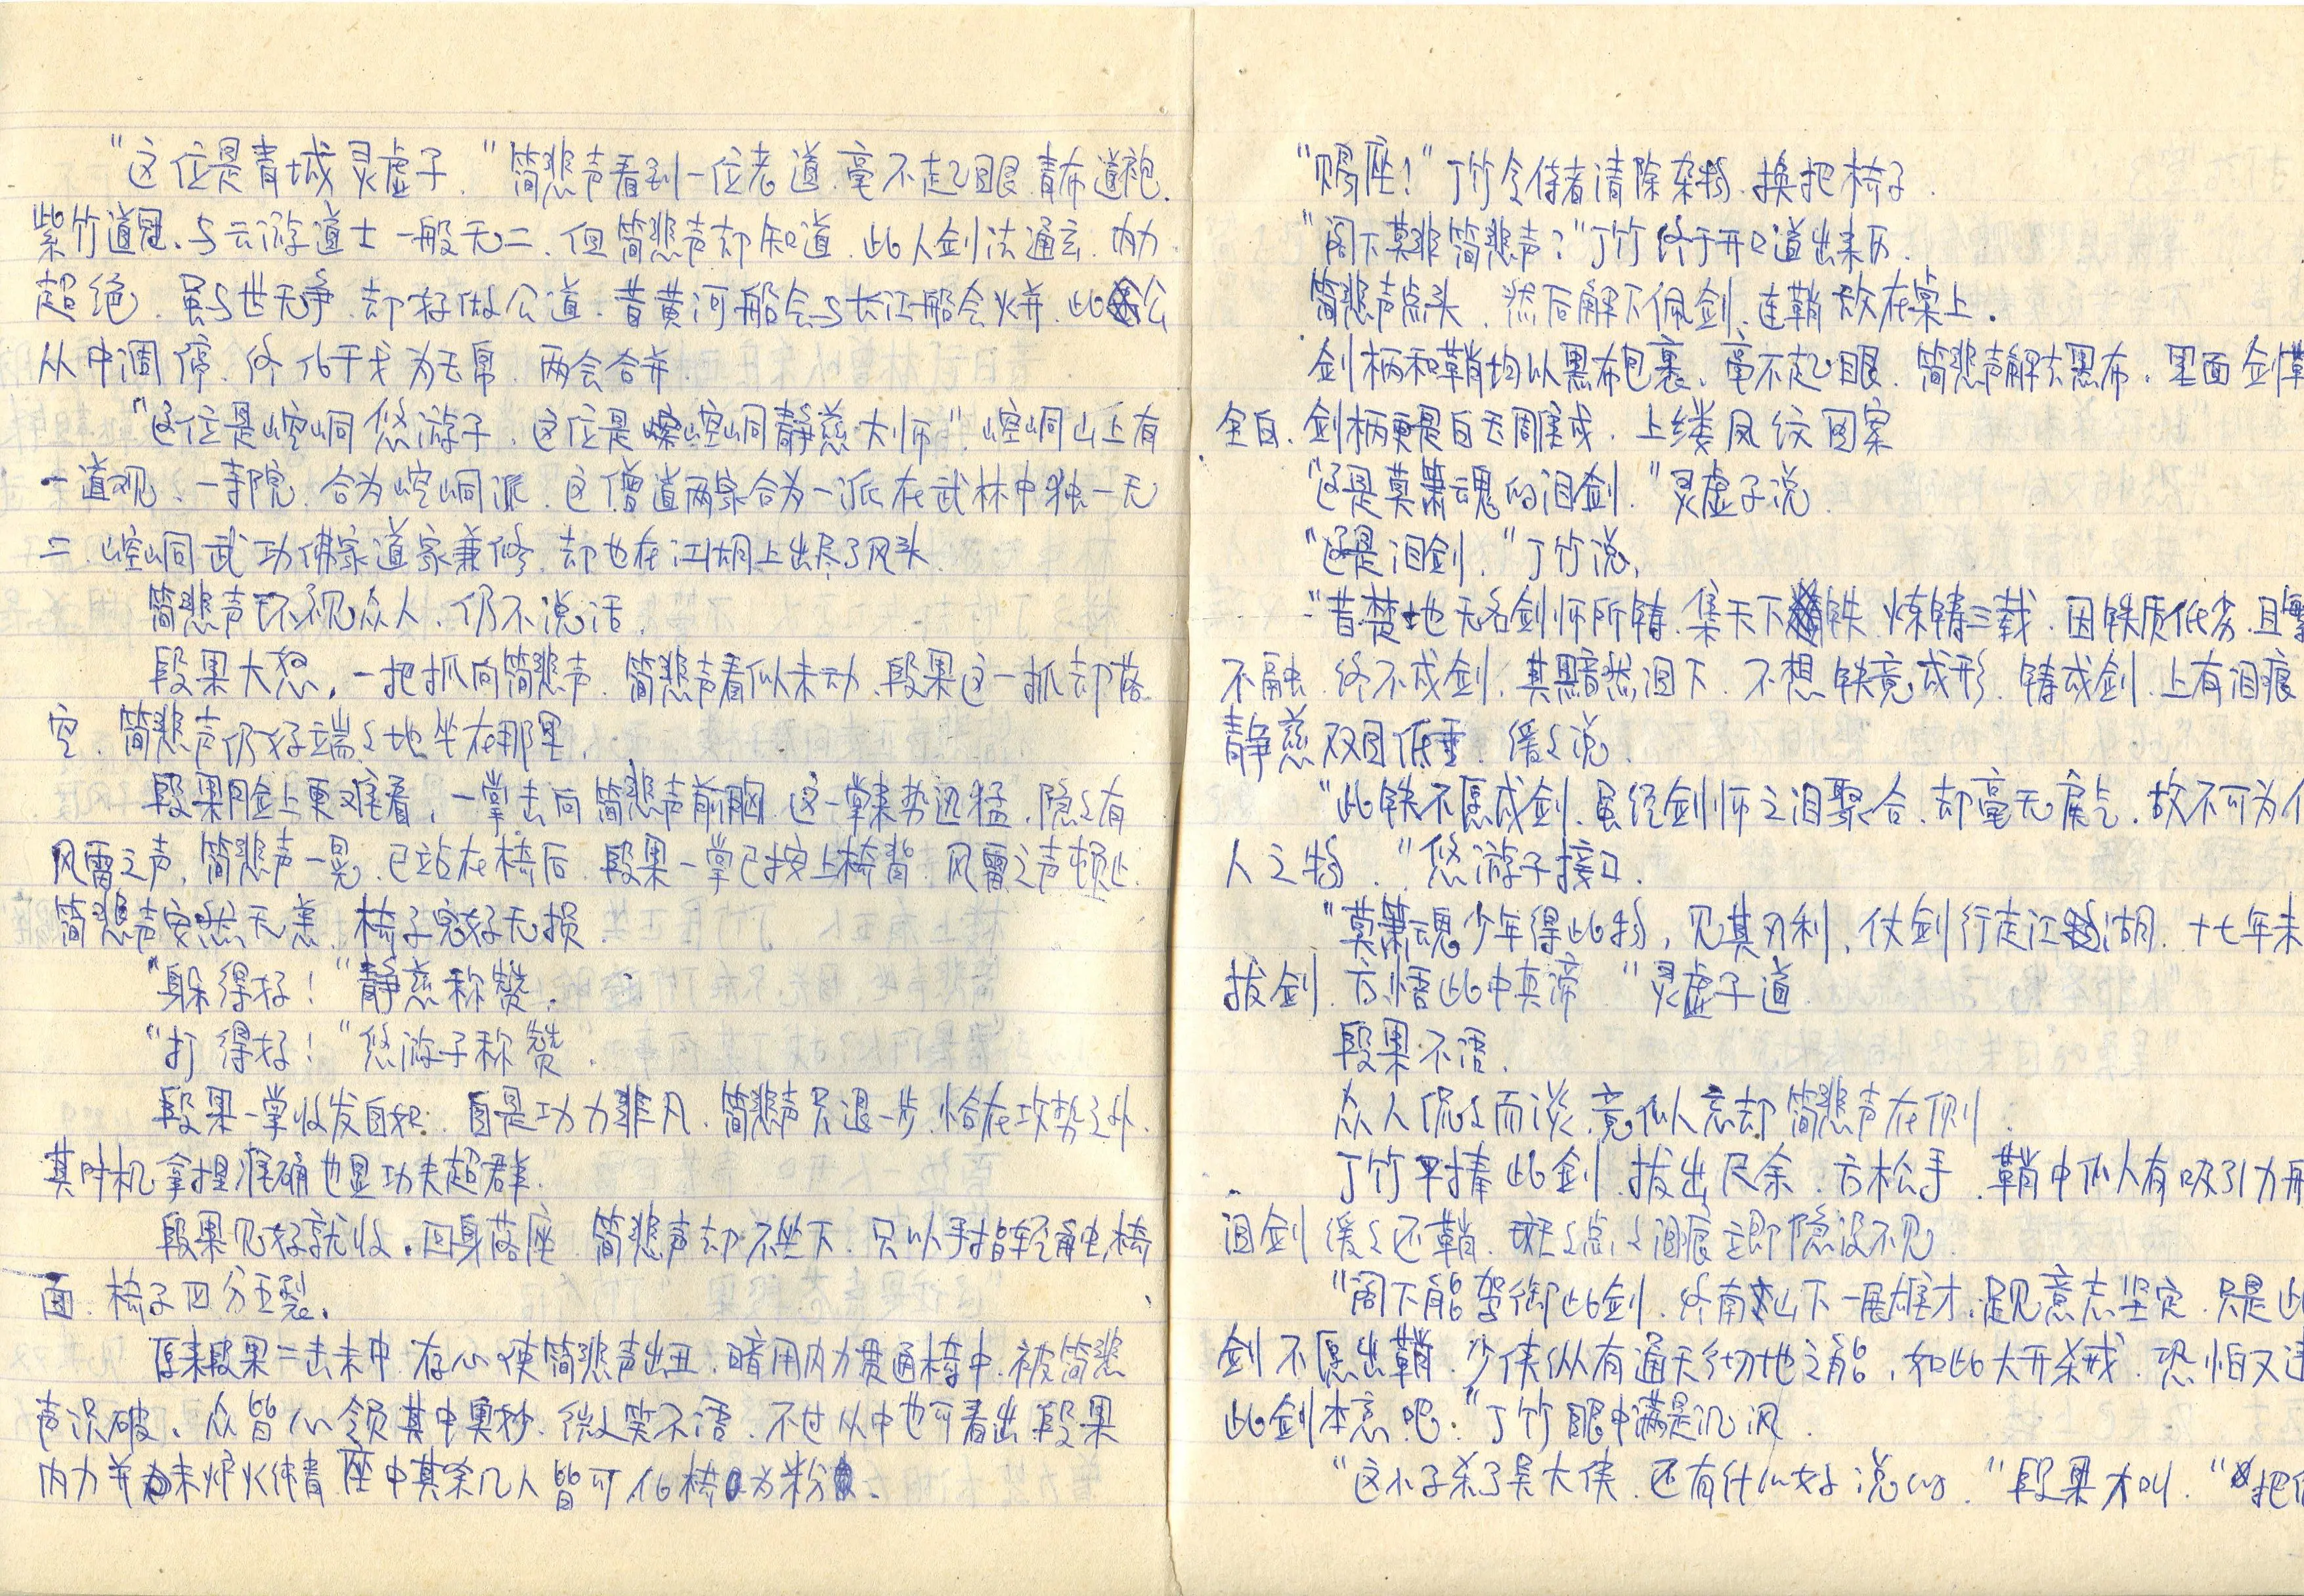 "这位是青城灵虚子."简悲声看到一位老道.毫不起眼.青布道袍.
紫竹道冠.与云游道士一般无二.但简悲声却知道.此人剑法通玄.内力
超绝.虽与世无争.却好做公道.昔黄河船会与长江船会火并.此公
从中调停.终化干戈为玉帛.两会合并.
"这位是崆峒悠游子.这位是崆峒静慈大师".崆峒山上有
一道观、一寺院.合为崆峒派.这僧道两家合为一派在武林中独一无
二.崆峒武功佛家道家兼修.却也在江湖上出尽了风头.
简悲声环视众人.仍不说话.
段果大怒.一把抓向简悲声.简悲声看似未动.段果这一抓却落
空.简悲声仍好端々地坐在那里.
段果脸上更难看.一掌击向简悲声前胸.这一掌来势迅猛.隐々有
风雷之声.简悲声一晃.已站在椅后.段果一掌已按上椅背.风雷之声顿止.
简悲声安然无恙.椅子完好无损.
"躲得好!"静慈称赞.
"打得好!"悠游子称赞.
段果一掌收发自如.自是功力非凡.简悲声只退一步.恰在攻势之外.
其时机拿捏准确也显功夫超群.
段果见好就收.回身落座.简悲声却不坐下.只以手指轻触椅
面.椅子四分五裂.
原来段果二击未中.存心使简悲声出丑.暗用内力贯通椅中.被简悲
声识破.众皆心领其中奥秒.微々笑不语.不过从中也可看出段果
内力并未炉火纯青.座中其余几人皆可化椅为粉.
"赐座!"丁竹令侍者清除杂物.换把椅子.
"阁下莫非简悲声?"丁竹终于开口道出来历.
简悲声点头.然后解下佩剑.连鞘放在桌上.
剑柄和鞘均以黑布包裹.毫不起眼.简悲声解去黑布.里面剑鞘
全白.剑柄更是白玉雕成.上缕凤纹图案
"这是莫萧魂的泪剑."灵虚子说.
"这是泪剑."丁竹说.
"昔楚地无名剑师所铸.集天下铁.炼铸三载.因铁质低劣.且
不融.终不成剑.其黯然泪下.不想铁竟成形.铸成剑.上有泪痕
静慈双目低垂.缓々说.
"此铁不愿成剑.虽经剑师之泪聚合.却毫无戾气.故不可为
人之物."悠游子接口.
"莫萧魂少年得此物,见其刃利、仗剑行走江湖.十七年未
拔剑.方悟此中真谛."灵虚子道.
段果不语.
众人侃々而谈.竟似忘却简悲声在侧.
丁竹平捧此剑.拔出尺余.方松手.鞘中似有吸引力
泪剑缓々还鞘.斑々点々泪痕立即隐没不见.
"阁下能驾御此剑.终南山下一展雄才.足见意志坚定.只是此
剑不愿出鞘.少侠纵有通天彻地之能.如此大开杀戒.恐怕又违
此剑本意吧."丁竹眼中满是讥讽.
"这小子杀了吴大侠.还有什么好说的."段果大叫."把